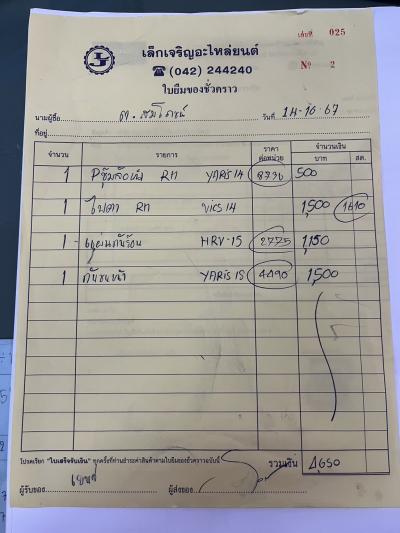 เล่มที่ 025
เล็กเจริญอะไหล่ยนต์
☎ (042) 244240
№ 2
ใบยืมของชั่วคราว
นามผู้ซื้อ วันที่ 14-10-67
ที่อยู่
จำนวน รายการ ราคาต่อหน่วย จำนวนเงิน
บาท สต.
1 RH YARIS 14 500
1 ไฟตา RH VIOS 14 1,500 1610
1 - แผ่นกันร้อน HRV-15 2775 1,150
1 กันชนหน้า YARIS 15 4490 1,500
โปรดเรียก "ใบเสร็จรับเงิน" ทุกครั้งที่ท่านชำระค่าสินค้าตามใบยืมของชั่วคราวฉบับนี้ รวมเงิน 4,650
ผู้รับของ ผู้ส่งของ